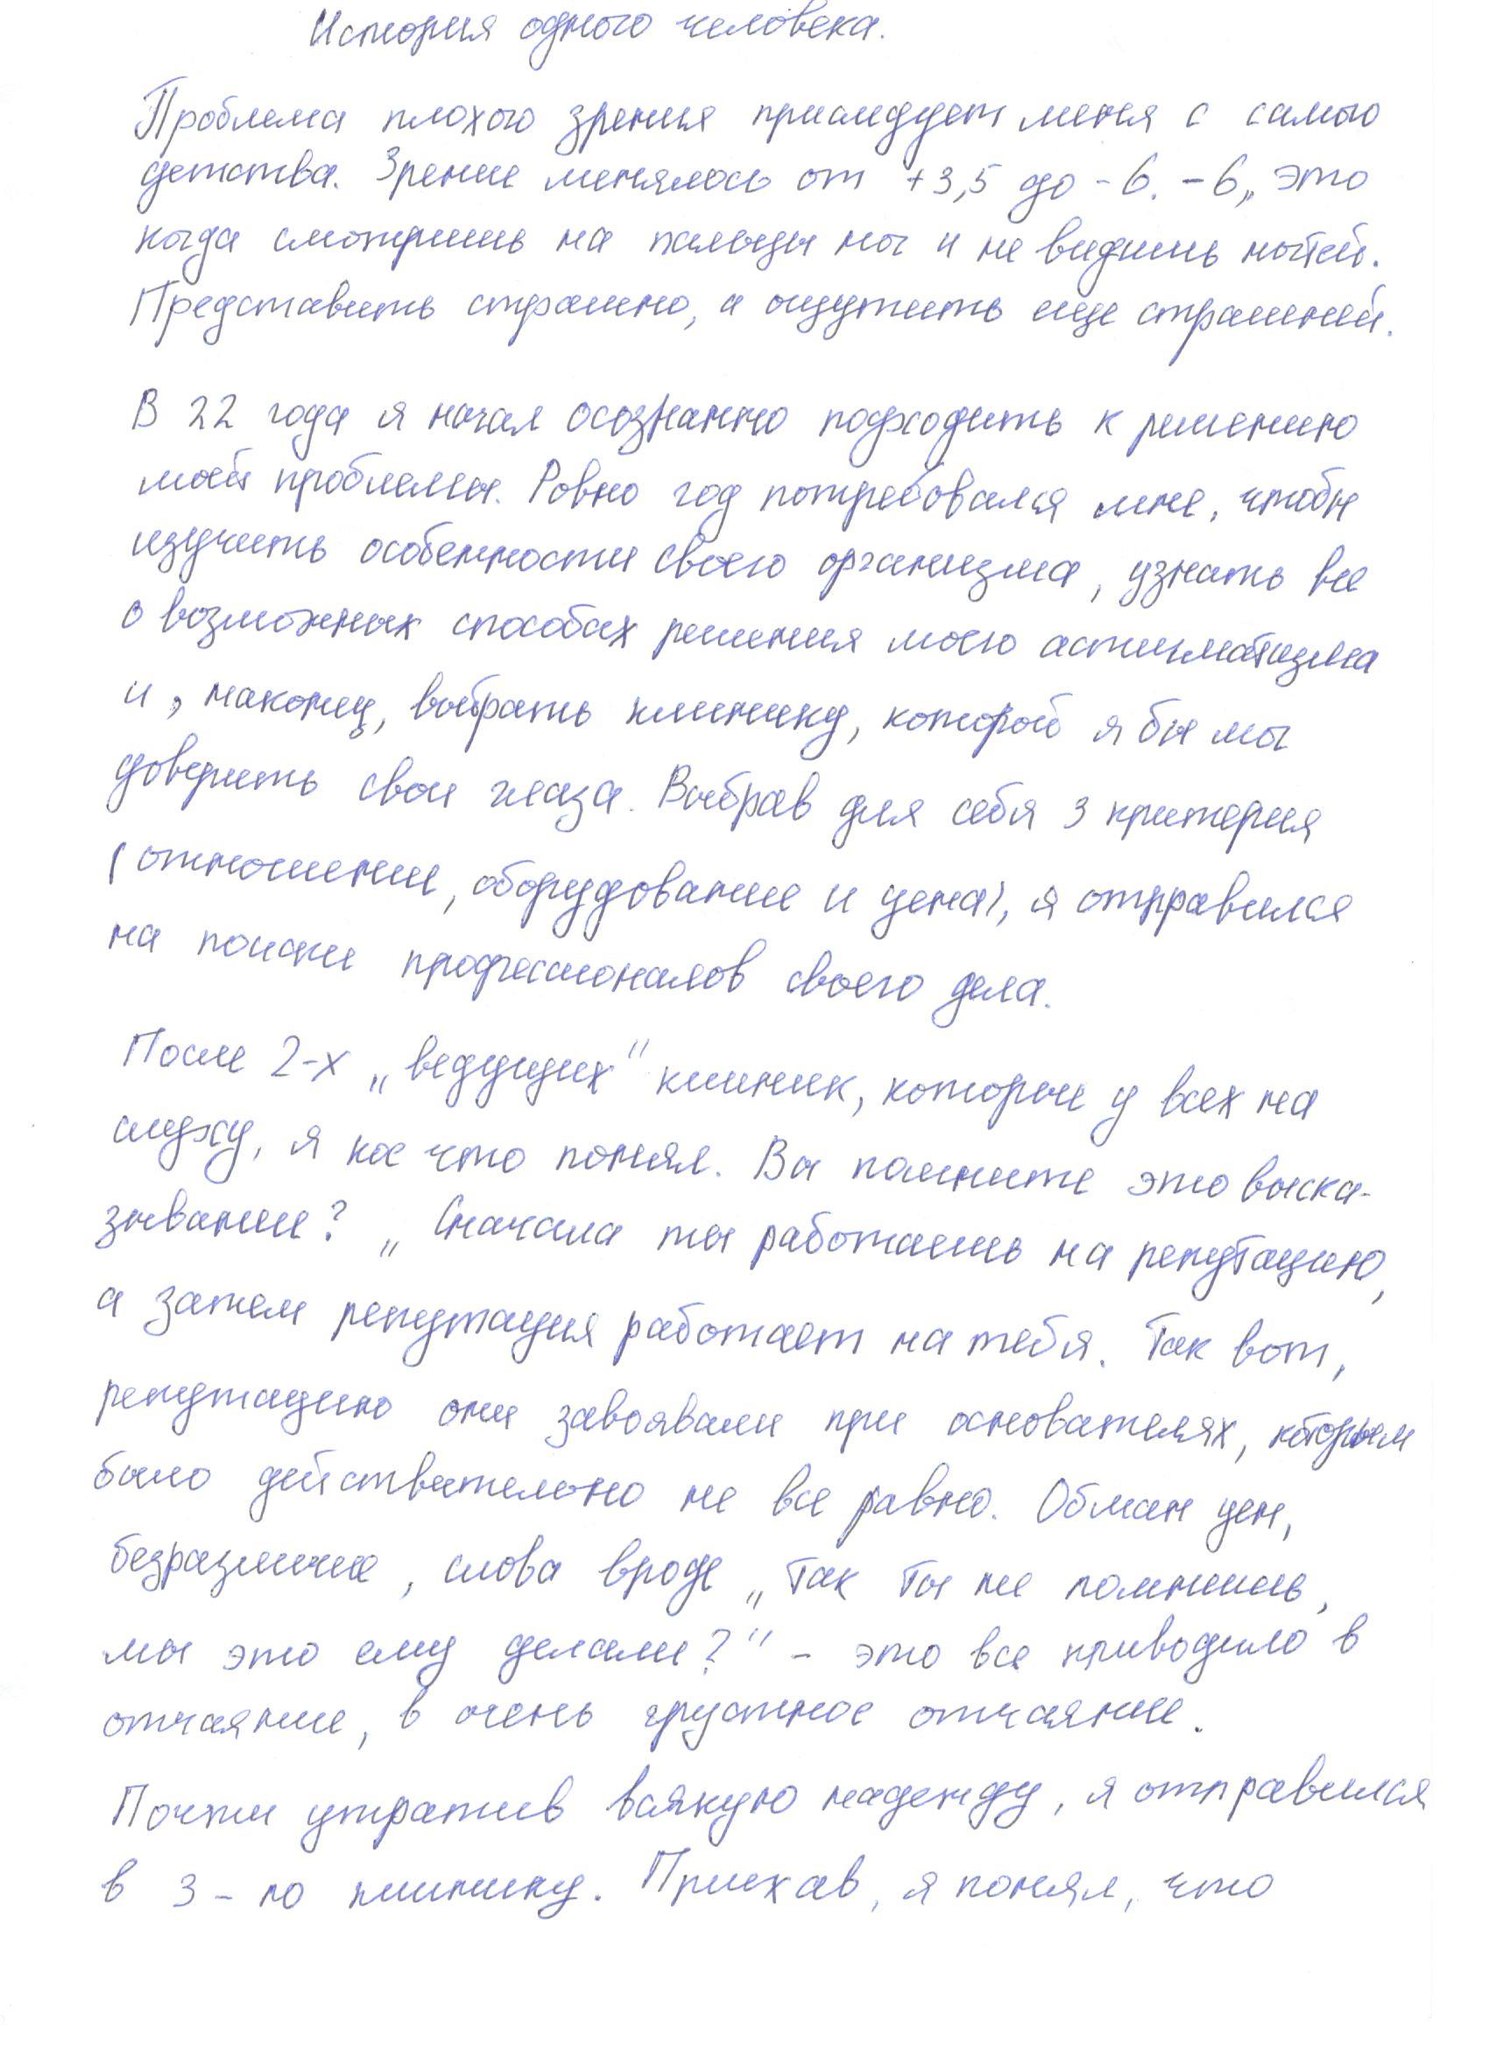 История одного человека.
Проблема плохого зрения приследует меня с самого
детства. Зрение менялось от +3,5 до -6. -6,, это
когда смотришь на пальцы ног и не видишь ногтей.
Представить страшно, а ощутить еще страшней.
В 22 года я начал осознанно подходить к решению
моей проблемы. Ровно год потребовался мне, чтобы
изучить особенности своего организма, узнать все
о возможных способах решения моего астигматизма
и, наконец, выбрать клинику, которой я бы мог
доверить свои глаза. Выбрав для себя 3 критерия
(отношение, оборудование и цена), я отправился
на поиски профессионалов своего дела.
После 2-х „ведущих" клиник, которые у всех на
слуху, я кое что понял. Вы помните это выска-
зывание? „Сначала ты работаешь на репутацию,
а затем репутация работает на тебя. Так вот,
репутацию они завоявали при основателях, которым
было действительно не все равно. Обман цен,
безразличие, слова вроде „Так ты не помнишь,
мы это ему делали?" - это все приводило в
отчаяние, в очень грустное отчаяние.
Почти утратив всякую надежду, я отправился
в 3-ю клинику. Приехав, я понял, что